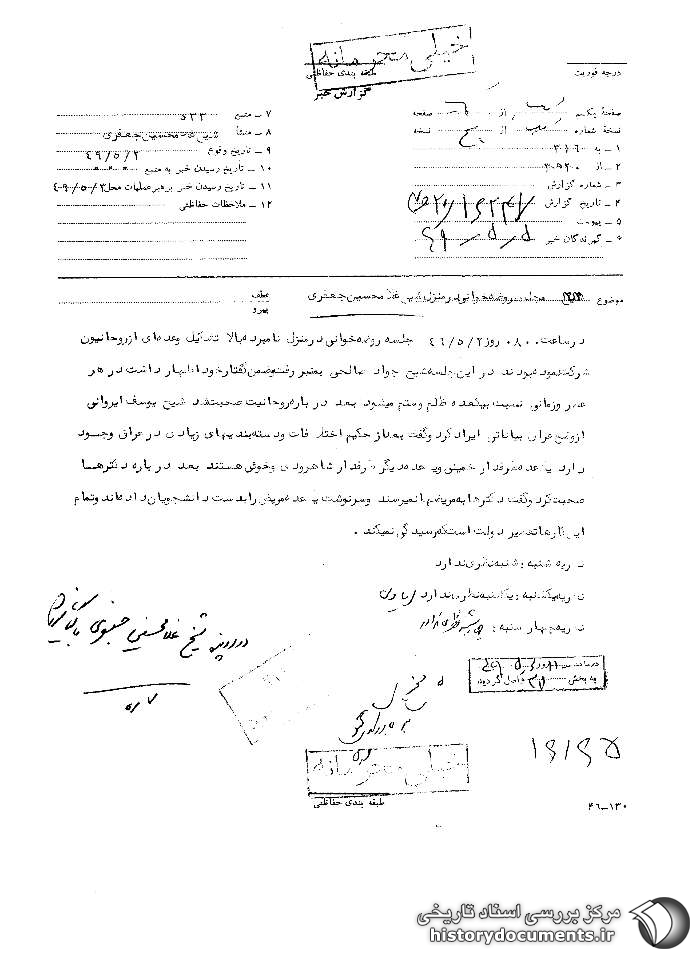 خیلی محرمانه
طبقه بندی حفاظتی
گزارش خبر
درجه فوریت
صفحه یکم از صفحه
نسخه شماره از پنج نسخه
۱ - به ۳۱۶
۲ - از
۳ - شماره گزارش
۴ - تاریخ گزارش
۵ - پیوست
۶ - گیرندگان خبر
۷ - منبع ۵۳۳
۸ - منشأ شیخ غلامحسین جعفری
۹ - تاریخ وقوع ۴۹/۵/۲
۱۰ - تاریخ رسیدن خبر به منبع
۱۱ - تاریخ رسیدن خبر برهبر عملیات محل ۴۹/۵/۳
۱۲ - ملاحظات حفاظتی
موضوع مجلس روضه خوانی در منزل شیخ غلامحسین جعفری
عطف
پیرو
در ساعت ۰۸۰۰ روز ۴۹/۵/۲ جلسه روضه خوانی در منزل نامبرده بالا تشکیل وعده ای از روحانیون
شرکت نموده بودند در این جلسه شیخ جواد صالحی بمنبر رفت و ضمن گفتار خود اظهار داشت در هر
عصر و زمانی نسبت بیکعده ظلم و ستم میشود بعد در باره روحانیت صحبت شد شیخ یوسف ایروانی
از وضع عراق بیاناتی ایراد کرد و گفت بعد از حکیم اختلافات و دسته بندیهای زیادی در عراق وجود
دارد یا عده طرفدار خمینی و یا عده دیگر طرفدار شاهرودی و خوئی هستند بعد در باره دکترها
صحبت کرد و گفت دکترها به مریضها نمیرسند و سرنوشت یا عده مریض را بدست دانشجویان داده اند و تمام
این کارها تقصیر دولت است که رسیدگی نمیکند .
نظریه شنبه : شنبه نظری ندارد
نظریه یکشنبه : یکشنبه نظری ندارد
نظریه چهارشنبه : چهارشنبه نظری ندارد
در ساعت روز
به بخش ۳۱۲ واصل گردید
در پرونده شیخ غلامحسین جعفری بایگانی شود
خیلی محرمانه
طبقه بندی حفاظتی
۱۶۱۶۵
۴۶-۱۳۰
مرکز بررسی اسناد تاریخی
historydocuments.ir